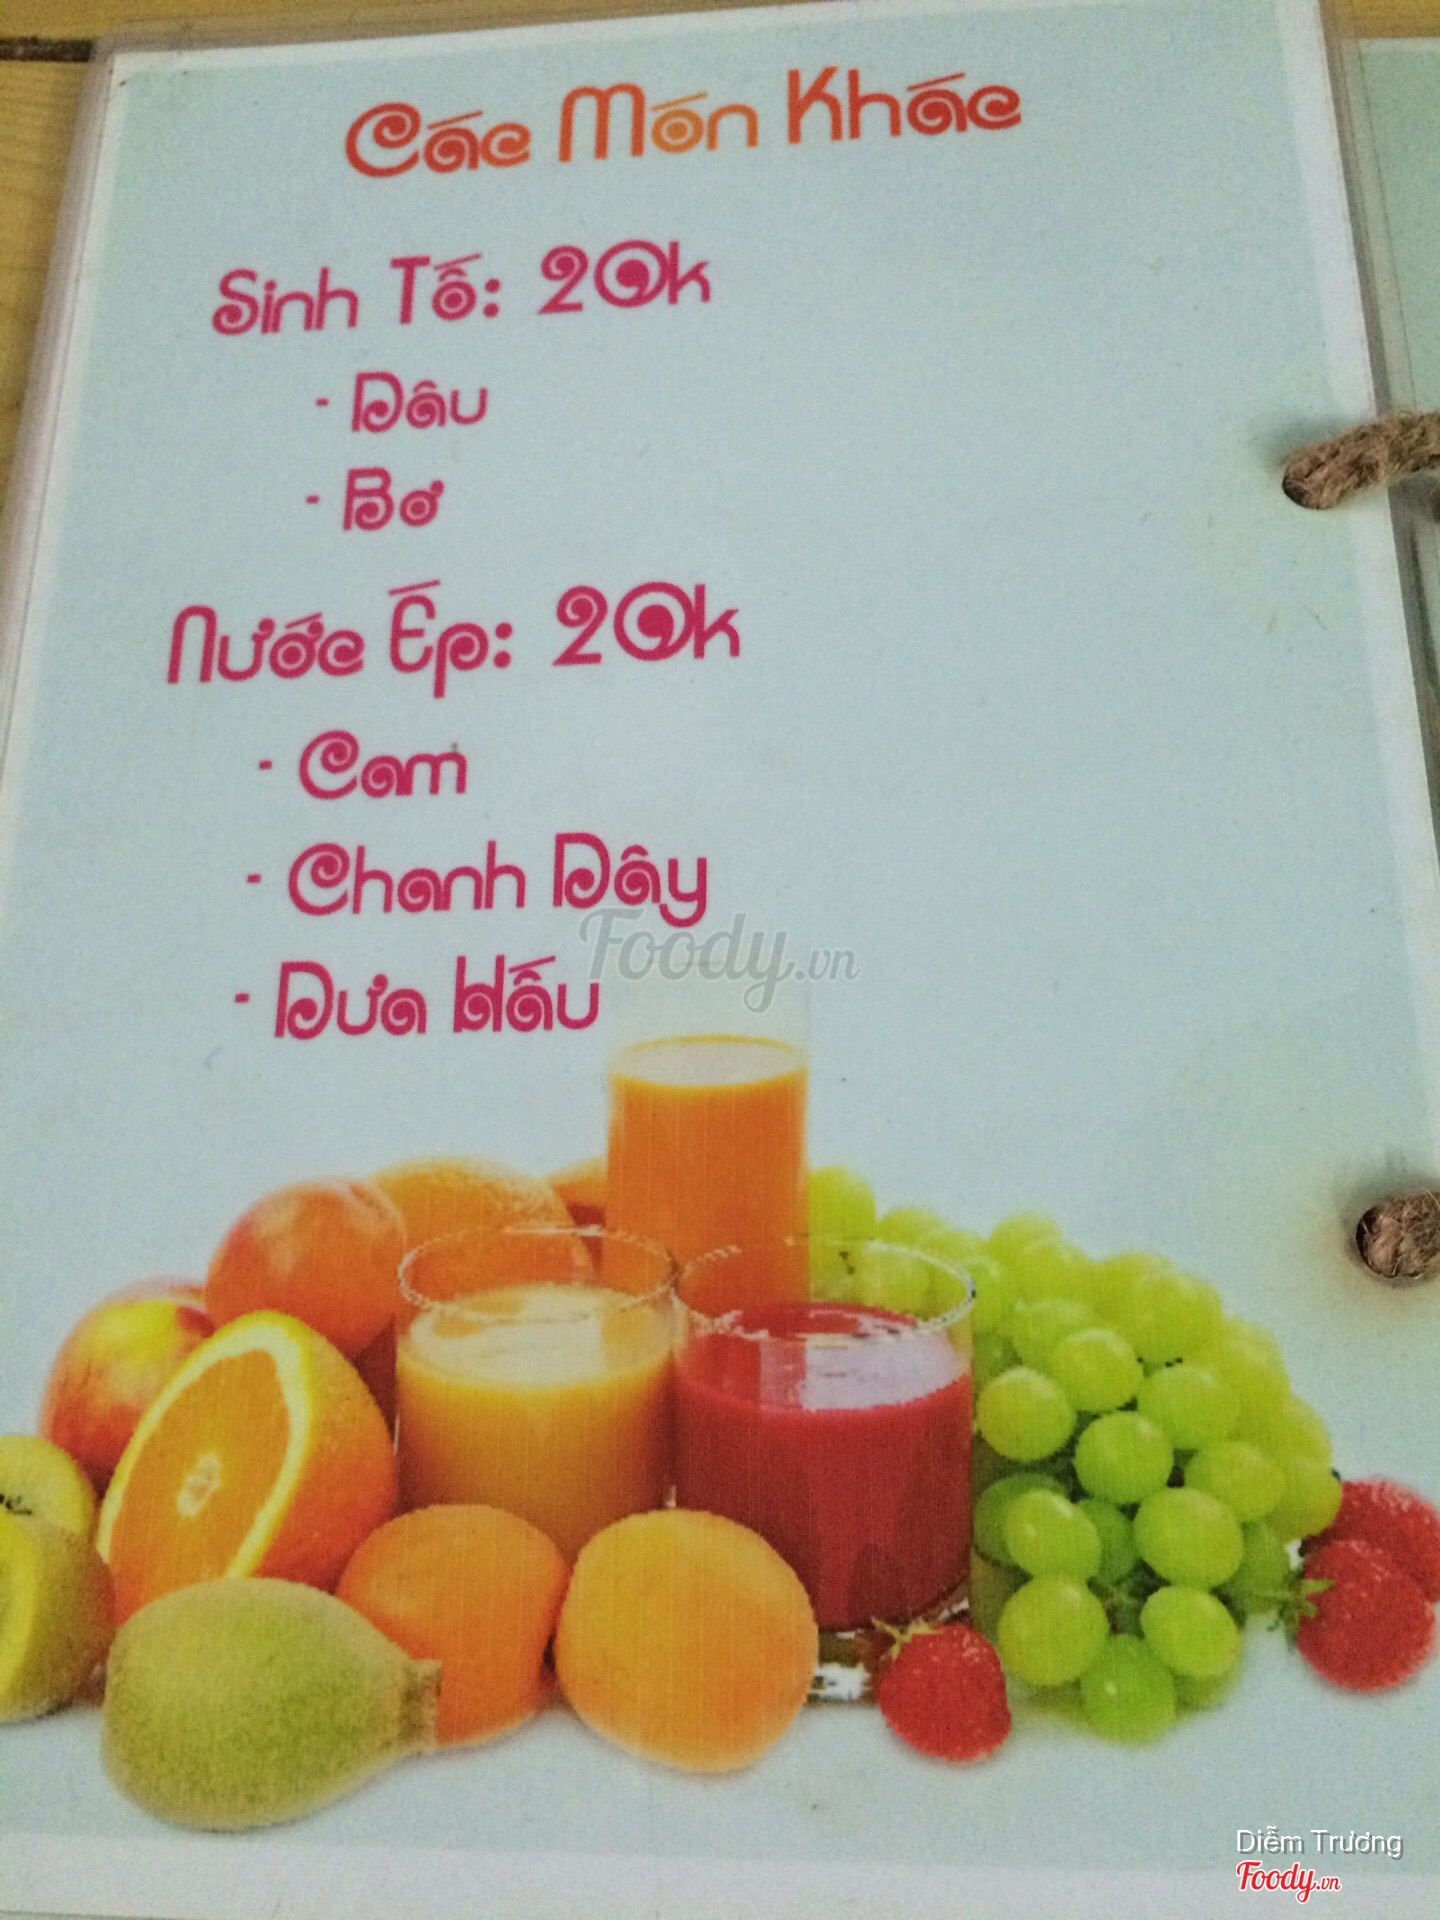 Các Món Khác
Sinh Tố: 20k
- Dâu
- Bơ
Nước Ép: 20k
- Cam
- Chanh Dây
- Dưa Hấu
Foody.vn
Diễm Trương
Foody.vn